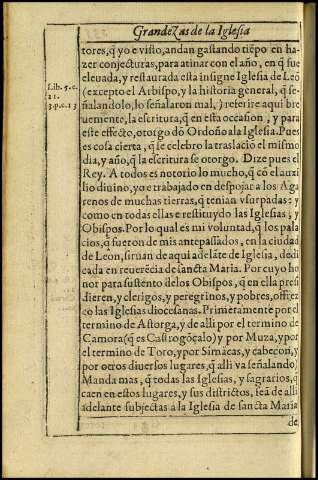 Grandezas de la Iglesia
tores, q̃ yo e visto, andan gastando tiẽpo en ha-
zer conjecturas, para atinar con el año, en q̃ fue
eleuada, y restaurada esta insigne Iglesia de Leõ
Lib. 5. c.
21.
3. p. c. 13
(excepto el Arbispo, y la historia general, q̃ se-
ñalandolo, lo señalaron mal,) referire aqui bre
uemente, la escritura, q̃ en esta occasion, y para
este effecto, otorgo dõ Ordoño a la Iglesia. Pues
es cosa cierta, q̃ se celebro la traslaciõ el mismo
dia, y año, q̃ la escritura se otorgo. Dize pues el
Rey. A todos es notorio lo mucho, q̃ cõ el auxi
lio diuino, yo e trabajado en despojar a los Aga
renos de muchas tierras, q̃ tenian vsurpadas: y
como en todas ellas e restituydo las Iglesias, y
Obispos. Por lo qual es mi voluntad, q̃ los pala
cios, q̃ fueron de mis antepassados, en la ciudad
de Leon, siruan de aqui adelãte de Iglesia, dedi
cada en reuerẽcia de sancta Maria. Por cuyo ho
nor para sustẽto delos Obispos, q̃ en ella presi
dieren, y clerigos, y peregrinos, y pobres, offrez
co las Iglesias diocesanas. Primeramente por el
termino de Astorga, y de alli por el termino de
Camora (q̃ es Castrogõçalo) y por Muza, y por
el termino de Toro, y por Simãcas, y cabeçon, y
por otros diuersos lugares, q̃ alli va señalando)
Manda mas, q̃ todas las Iglesias, y sagrarios, q̃
caen en estos lugares, y sus districtos, seã de alli
adelante subjectas a la Iglesia de sancta Maria
de